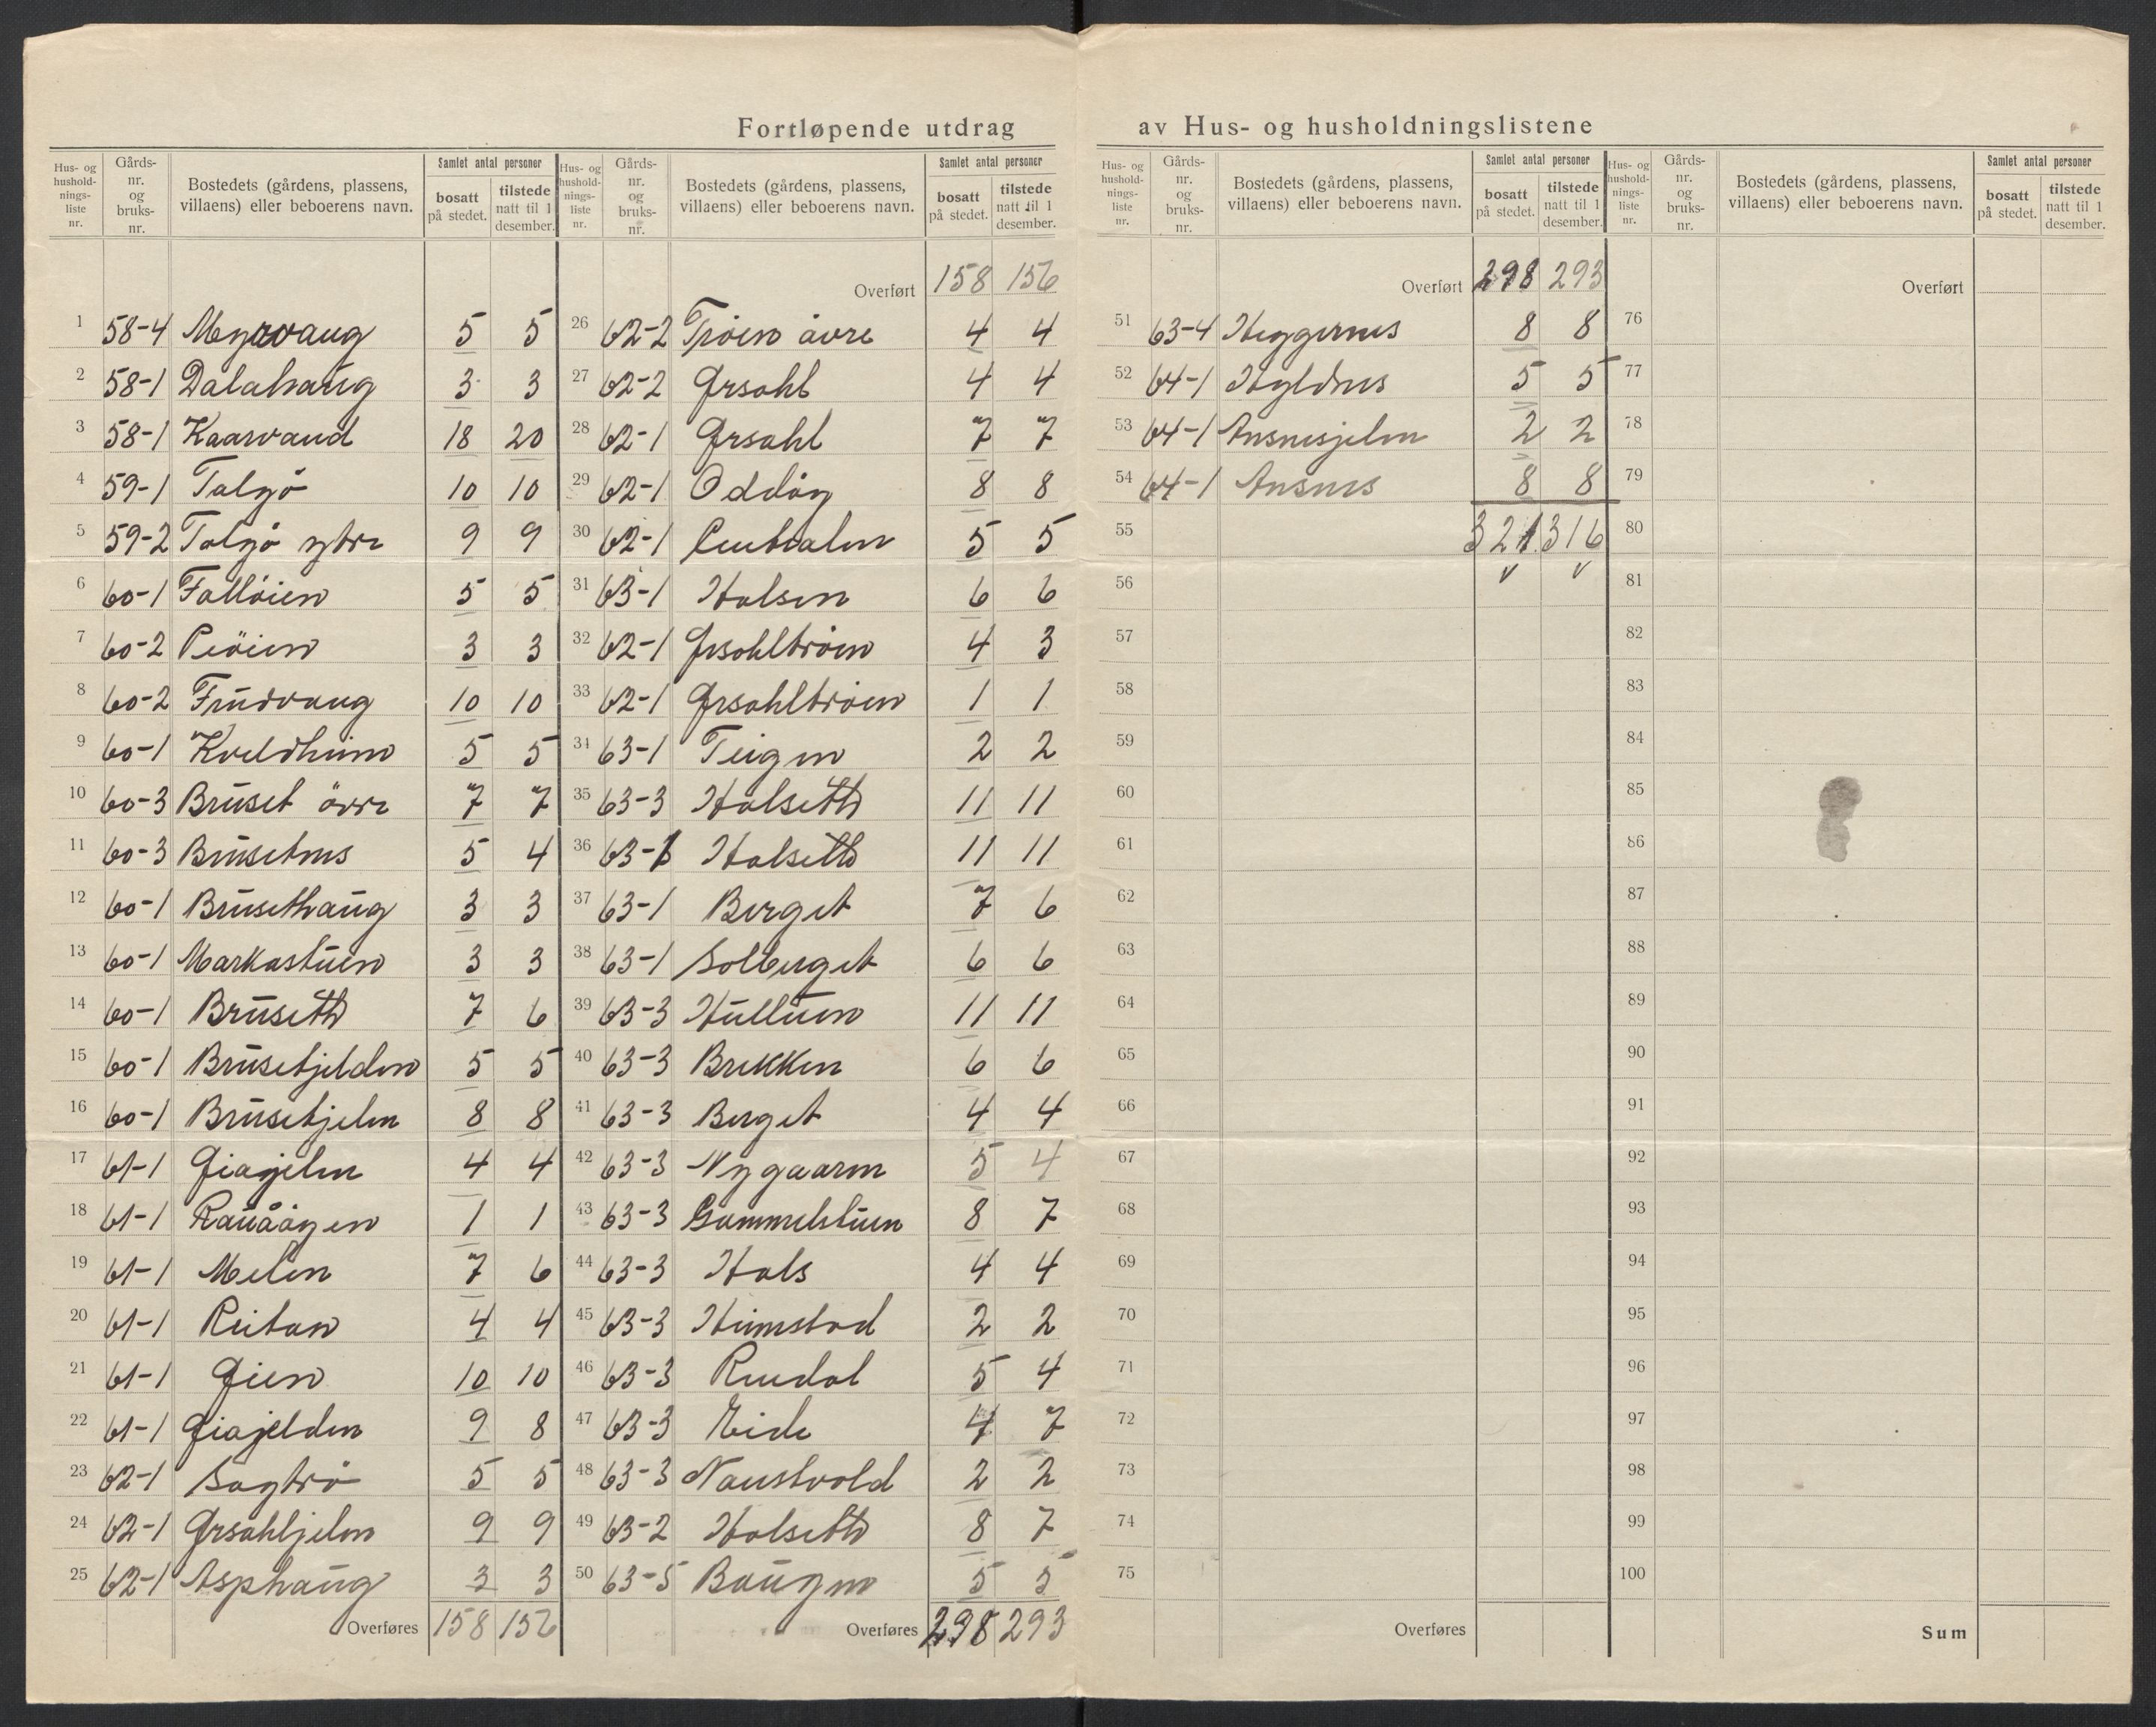 Fortløpende utdrag av Hus- og husholdningslistene
Hus- og hushold- nings- liste nr. | Gårds- nr. og bruks- nr. | Bostedets (gårdens, plassens, villaens) eller beboerens navn. | Samlet antal personer | bosatt på stedet. | tilstede natt til 1 desember.
1 58-4 Myrvang 5 5
2 58-1 Dalahaug 3 3
3 58-1 Kaarvand 18 20
4 59-1 Talgö 10 10
5 59-2 Talgö ytre 9 9
6 60-1 Fallöien 5 5
7 60-2 Peöien 3 3
8 60-2 Frudvang 10 10
9 60-1 Kveldheim 5 5
10 60-3 Bruset övre 7 7
11 60-3 Brusetnes 5 4
12 60-1 Brusethaug 3 3
13 60-1 Markastuen 3 3
14 60-1 Bruseth 7 6
15 60-1 Brusetjelden 5 5
16 60-1 Brusetjelen 8 8
17 61-1 Giajelen 4 4
18 61-1 1 1
19 61-1 Melen 7 6
20 61-1 Reitan 4 4
21 61-1 Gien 10 10
22 61-1 Giajelden 9 8
23 62-1 Sagtrö 5 5
24 62-1 Grsahljelen 9 9
25 62-1 Asphaug 3 3
Overføres 158 156
Hus- og hushold- nings- liste nr. | Gårds- nr. og bruks- nr. | Bostedets (gårdens, plassens, villaens) eller beboerens navn. | Samlet antal personer | bosatt på stedet. | tilstede natt til 1 desember.
Overført 158 156
26 62-2 Tröen övre 4 4
27 62-2 Grsahl 4 4
28 62-1 Grsahl 7 7
29 62-1 Oddög 8 8
30 62-1 Centralen 5 5
31 63-1 Halsen 6 6
32 62-1 Grsahltröen 4 3
33 62-1 Grsahltröen 1 1
34 63-1 Teigen 2 2
35 63-3 Halseth 11 11
36 63-1 Halseth 11 11
37 63-1 Berget 7 6
38 63-1 Solberget 6 6
39 63-3 Hulluen 11 11
40 63-3 Brekken 6 6
41 63-3 Berget 4 4
42 63-3 Nygaarn 5 4
43 63-3 Gammelstuen 8 7
44 63-3 Hals 4 4
45 63-3 Heimstad 2 2
46 63-3 Rendal 5 4
47 63-3 Eide 7
48 63-3 Naustvold 2 2
49 63-2 Halseth 8 7
50 63-5 Baugen 5 5
Overføres 298 293
Hus- og hushold- nings- liste nr. | Gårds- nr. og bruks- nr. | Bostedets (gårdens, plassens, villaens) eller beboerens navn. | Samlet antal personer | bosatt på stedet. | tilstede natt til 1 desember.
Overført 298 293
51 63-4 Heggernes 8 8
52 64-1 Hyldnes 5 5
53 64-1 Ansnesjelen 2 2
54 64-1 Ansnes 8 8
55 321 316
56
57
58
59
60
61
62
63
64
65
66
67
68
69
70
71
72
73
74
75
Overføres
Hus- og hushold- nings- liste nr. | Gårds- nr. og bruks- nr. | Bostedets (gårdens, plassens, villaens) eller beboerens navn. | Samlet antal personer | bosatt på stedet. | tilstede natt til 1 desember.
Overført
76
77
78
79
80
81
82
83
84
85
86
87
88
89
90
91
92
93
94
95
96
97
98
99
100
Sum